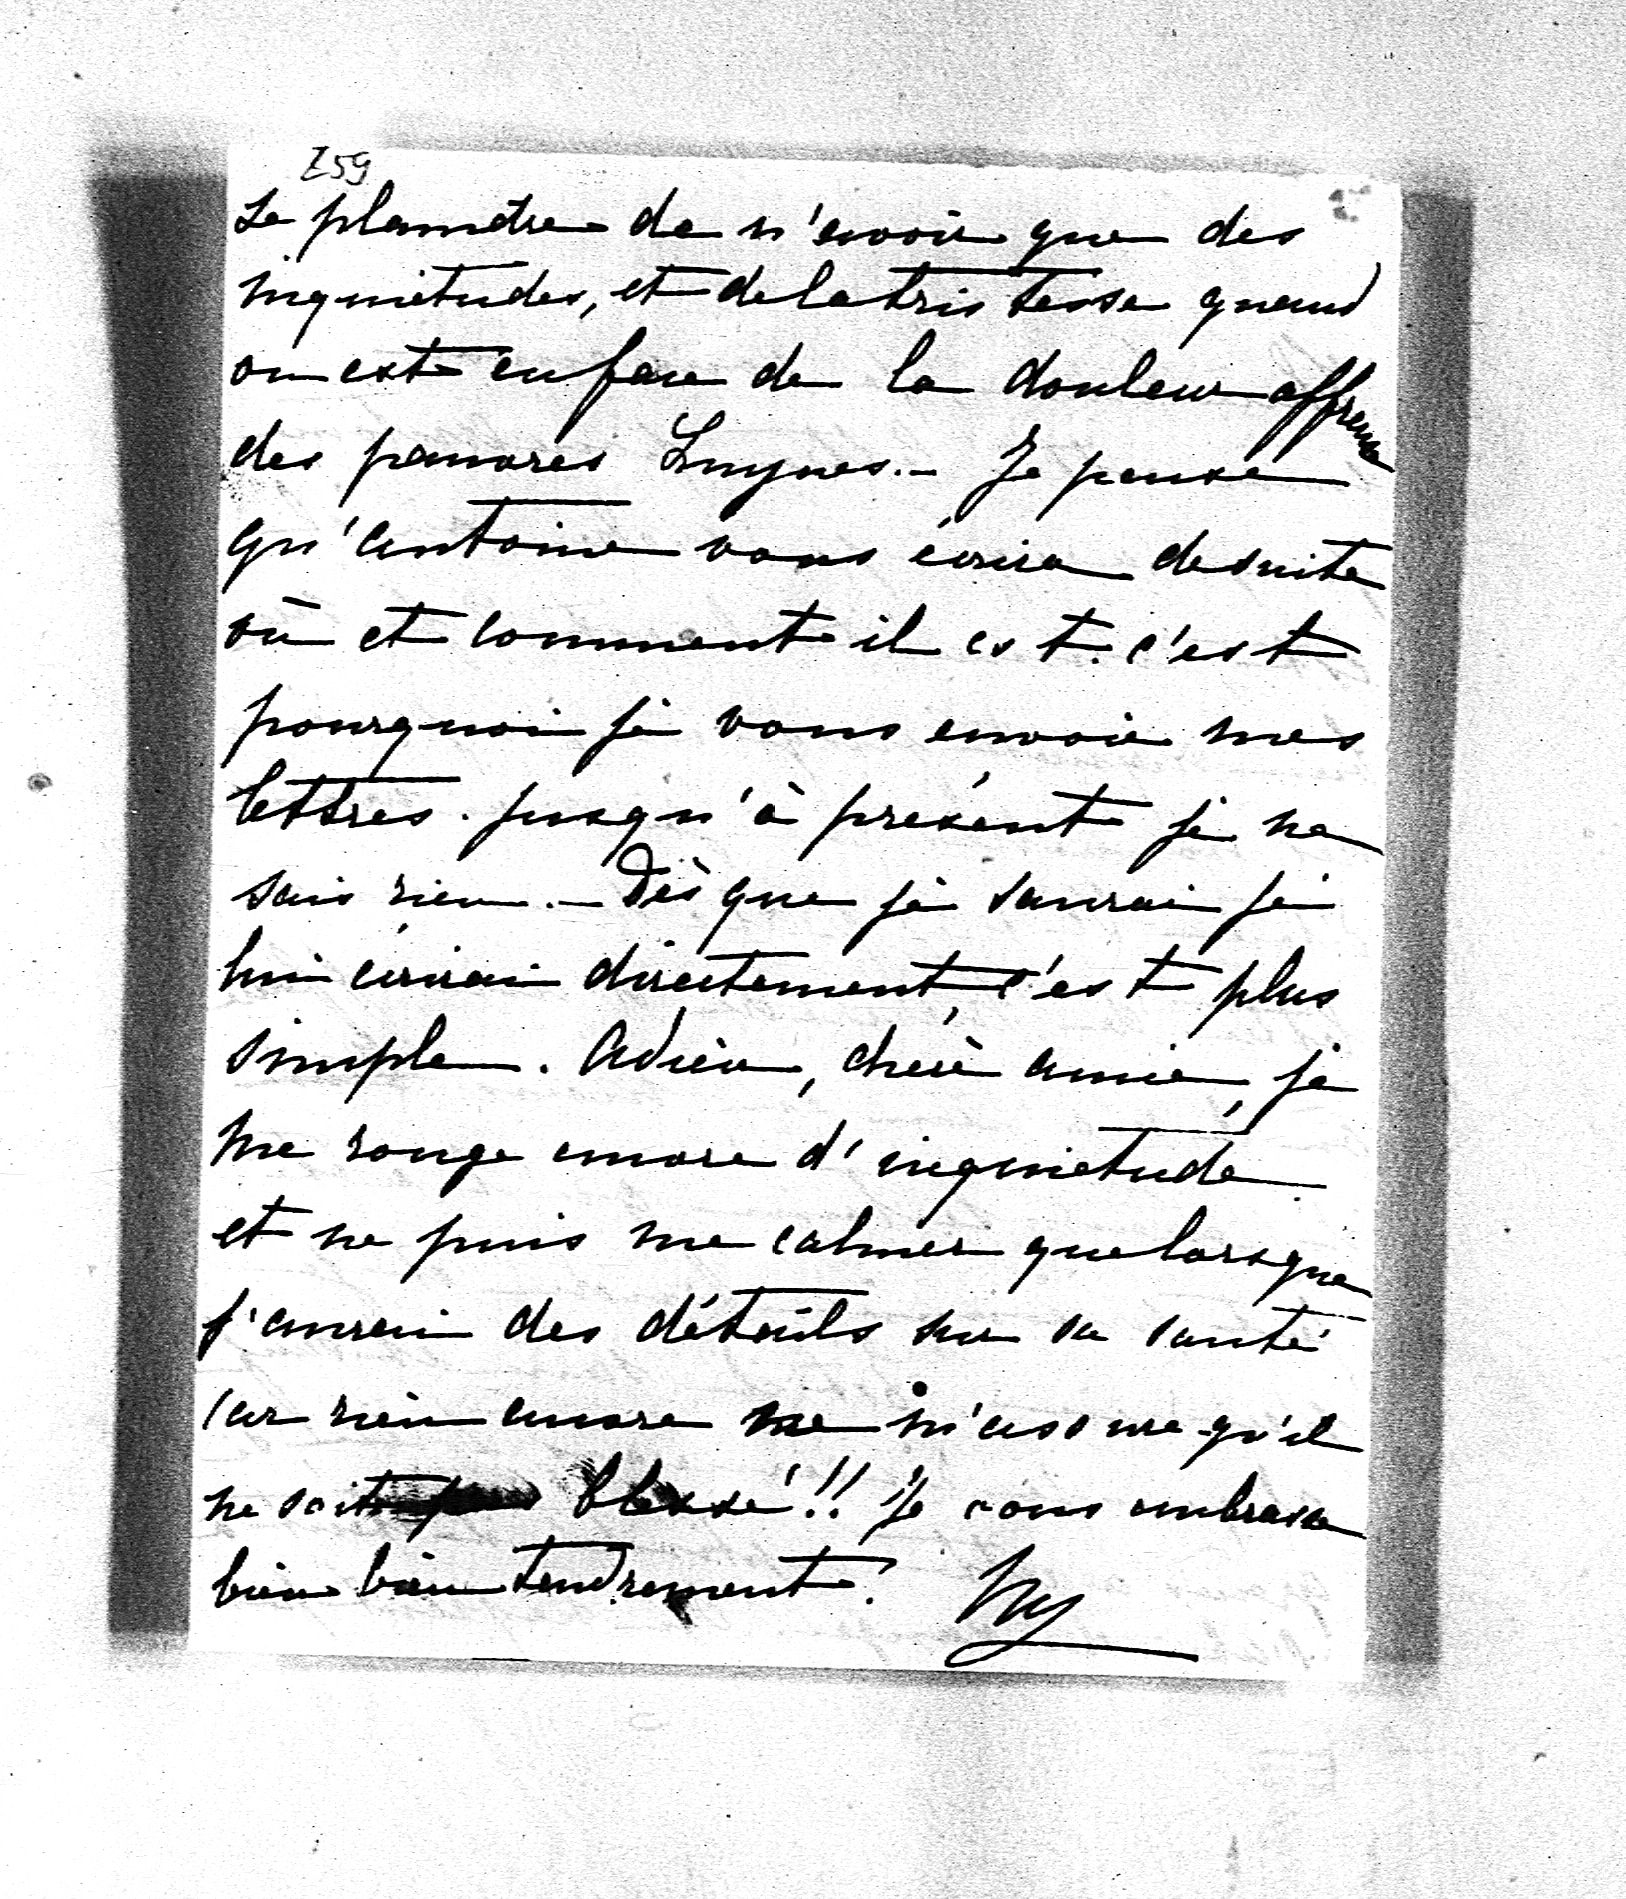 Z59
se plaindre de n'avoir que des
inquiétudes, et de la tristesse quand
on est en face de la douleur affreuse
des pauvres Luynes. — Je pense
qu'Antoine vous écrira de suite
où et comment il est. c'est
pourquoi je vous envoie mes
lettres. Jusqu'à présent je ne
sais rien. — Dès que je saurai je
lui écrirai directement, c'est plus
simple. Adieu, chère amie, je
me ronge encore d'inquiétude
et ne puis me calmer que lorsque
j'aurai des détails sur sa santé
car rien encore ne m'assure qu'il
ne soit pas blessé!! Je vous embrasse
bien bien tendrement.